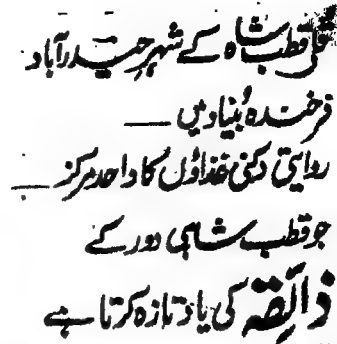 قلی قطب شاہ کے شہر حیدرآباد
فرخندہ بُنیاد میں —
روایتی دکنی غذاؤں کا واحد مرکز —
جو قطب شاہی دور کے
ذائقہ کی یاد تازہ کرتا ہے